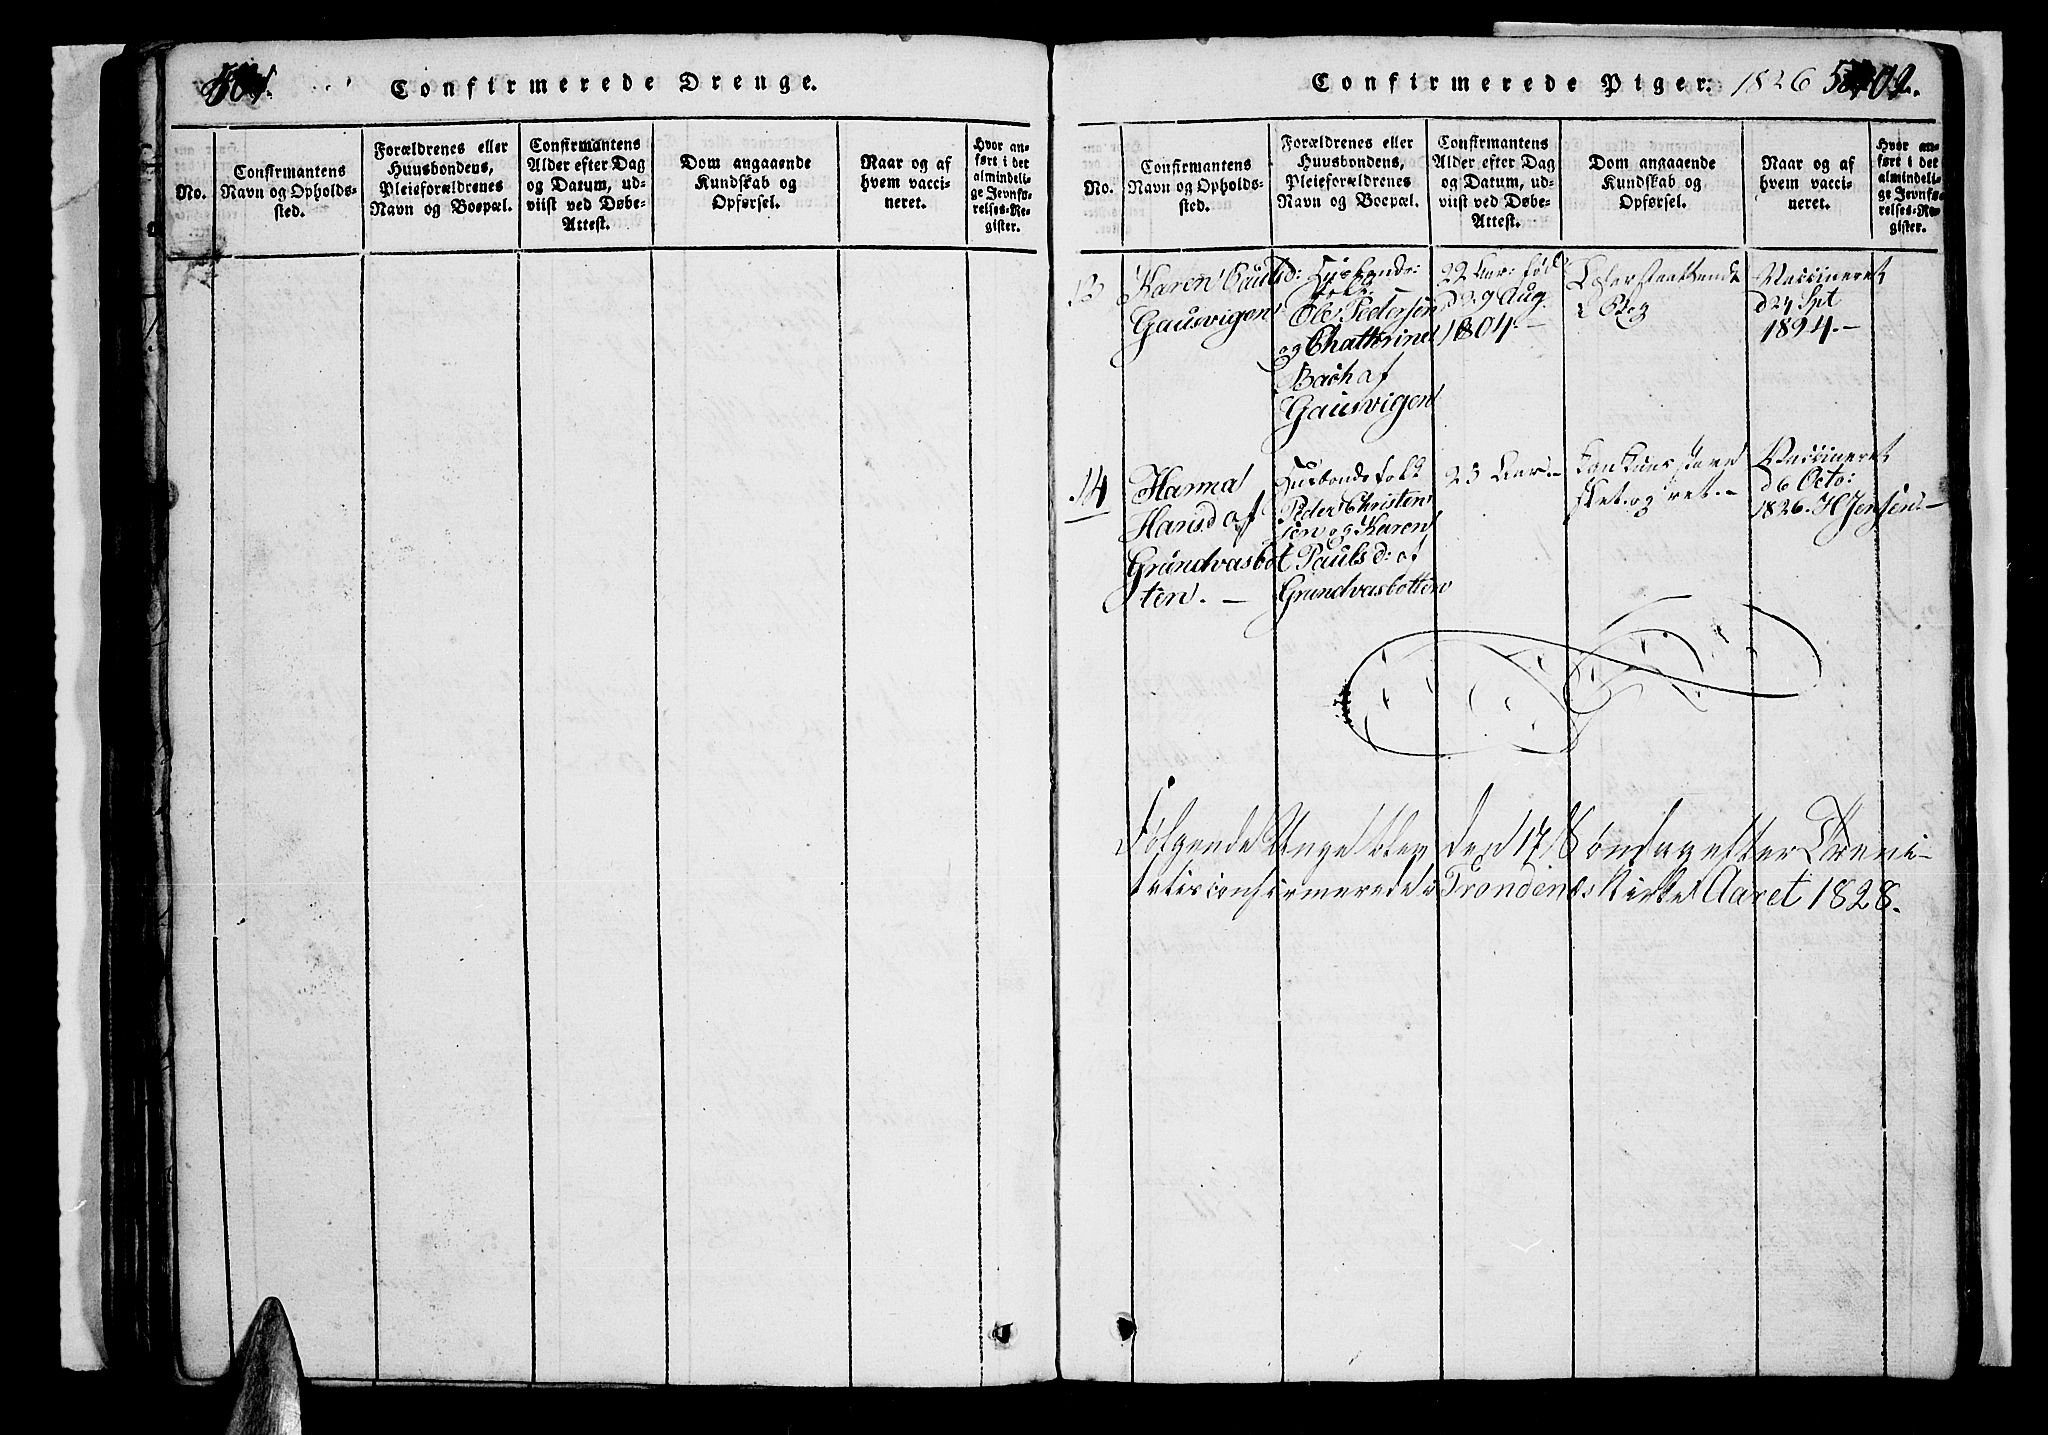 Confirmerede Drenge.
No.
Confirmantens
Navn og Opholds-
sted.
Forældrenes eller
Huusbondens,
Pleieforældrenes
Navn og Boepæl.
Confirmantens
Alder efter Dag
og Datum, ud-
viist ved Døbe-
Attest.
Dom angaaende
Kundskab og
Opførsel.
Naar og af
hvem vacci-
neret.
Hvor an-
ført i det
almindeli-
ge Jevnfø-
relses-Re-
gister.
Confirmerede Piger. 1826
No.
Confirmantens
Navn og Opholds-
sted.
Forældrenes eller
Huusbondens,
Pleieforældrenes
Navn og Boepæl.
Confirmantens
Alder efter Dag
og Datum, ud-
viist ved Døbe-
Attest.
Dom angaaende
Kundskab og
Opførsel.
Naar og af
hvem vacci-
neret.
Hvor an-
ført i det
almindeli-
ge Jevnfø-
relses-Re-
gister.
13
Karen Paulsd:
Gausvigen
Husbonds:
folk:
Ole Pedersen
og Chatterine
Bach af
Gausvigen
22 Aar: fød
d 29 Aug.
1804.-
Vaccineret
d 24 Spt
1824.-
14
Hanna
Hansd af
Grundvasbot
ten. -
Husbondsfolk
Peder Christen
sen og Karen
Paulsd: af
Grundvasbotten
23 Aar.-
og ret.-
Vaccineret
d 6 Octo:
1826. H Jensen.-
Følgende Unge blev den 17 Søndag efter Treni-
tatis confirmerede i Trondenæs Kirke Aaret 1828.